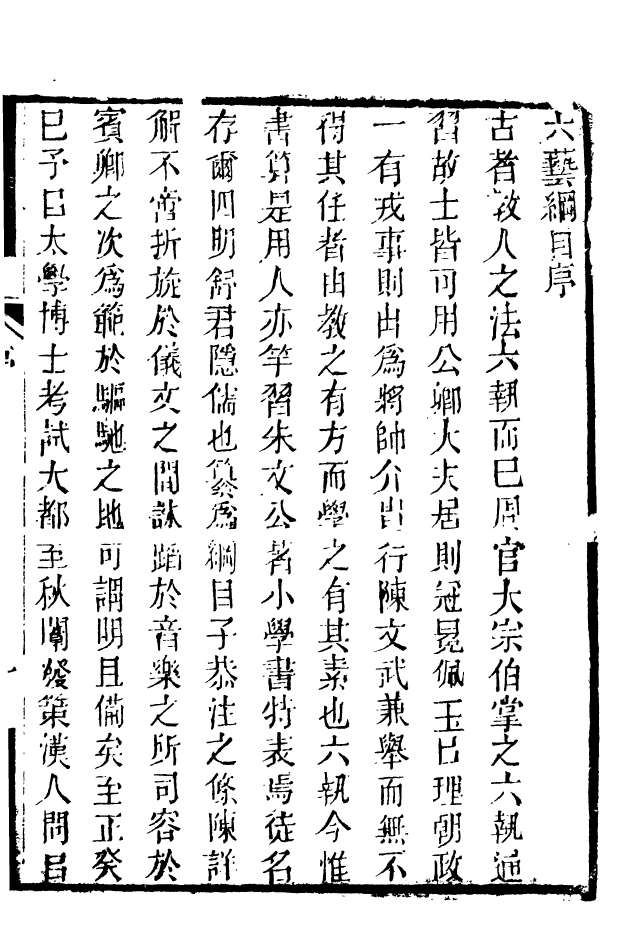 六藝綱目序
古者敎人之法六執而已周官大宗伯掌之六執通
習故士皆可用公卿大夫居則冠冕佩玉㠯理朝政
一有戎事則出爲將帥介冑行陳文武兼舉而無不
得其任者由教之有方而學之有其素也六執今惟
書算是用人亦罕習朱文公著小學書特表焉徒名
存爾四明舒君隱儒也纂爲綱目子恭注之條陳詳
解不啻折旋於儀文之間詠蹈於音樂之所司容於
賓卿之次爲範於驅馳之地可謂明且備矣至正癸
巳予㠯太學博士考試大都至秋闈發策漢人問㠯